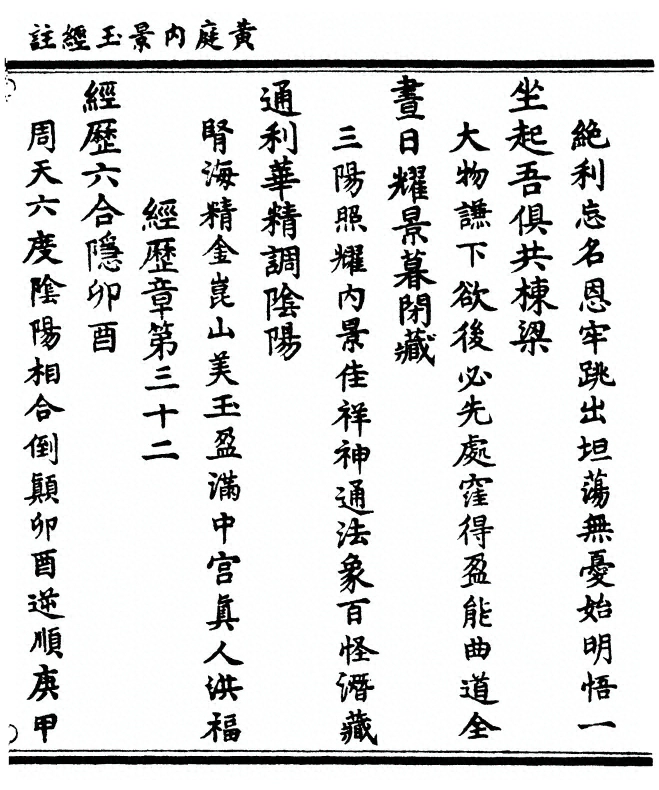 黃庭內景玉經註
絶利忘名恩牢跳出坦蕩無憂始明悟一
坐起吾俱共棟梁
大物謙下欲後必先處窪得盈能曲道全
晝日耀景暮閉藏
三陽照耀內景佳祥神通法象百怪潛藏
通利華精調陰陽
腎海精金崑山美玉盈滿中宮眞人洪福
經歷章第三十二
經歷六合隱卯酉
周天六度陰陽相合倒顛卯酉逆順庚甲